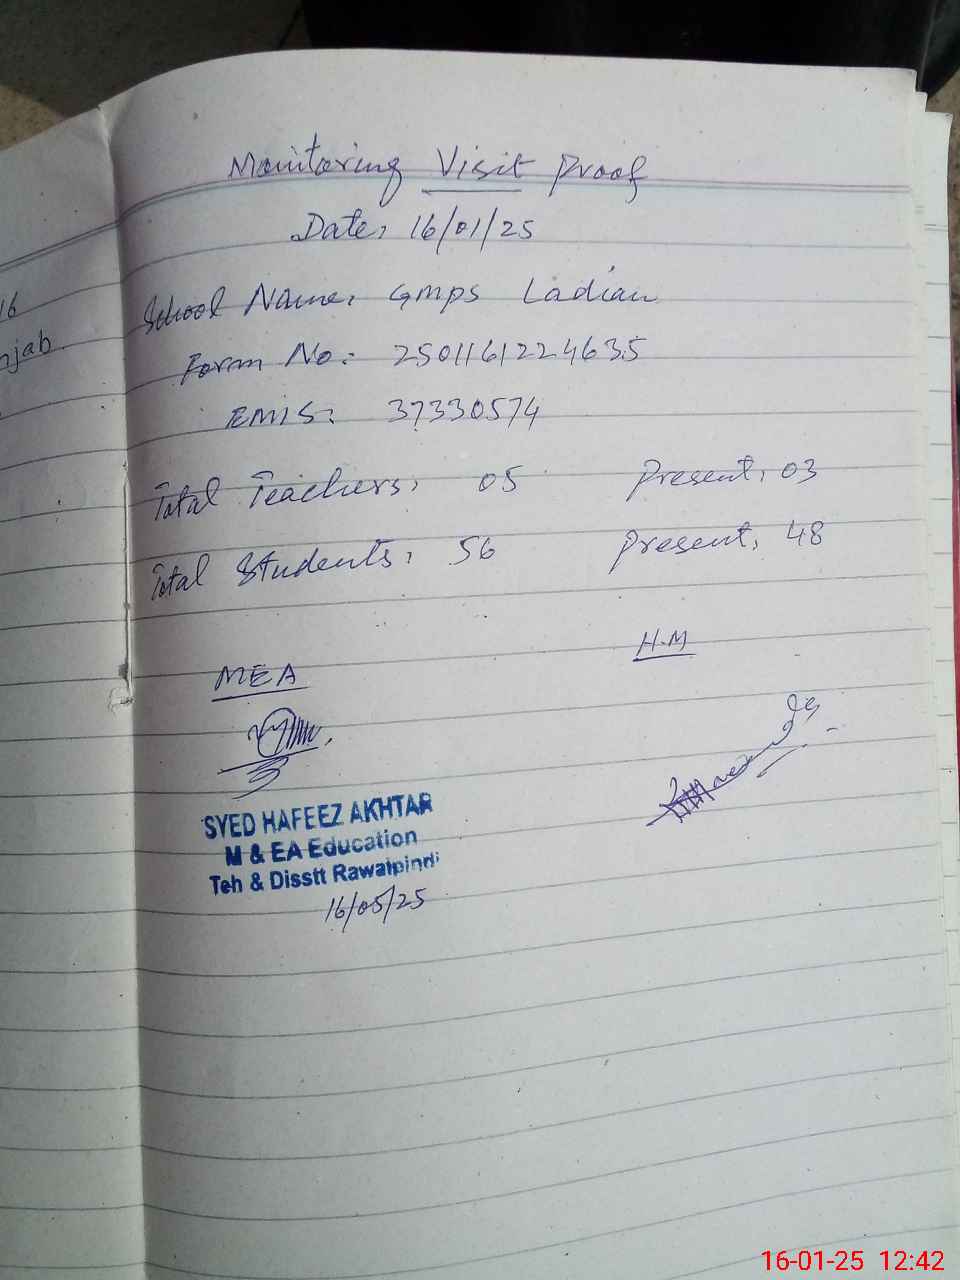 Monitoring Visit Proof
Date: 16/01/25
School Name: GMPS Ladian
Form No: 2501161224635
EMIS: 37330574
Total Teachers: 05 Present: 03
Total Students: 56 Present: 48
MEA H.M
SYED HAFEEZ AKHTAR
M & EA Education
Teh & Disstt Rawalpindi
16/05/25
16
njab
16-01-25 12:42